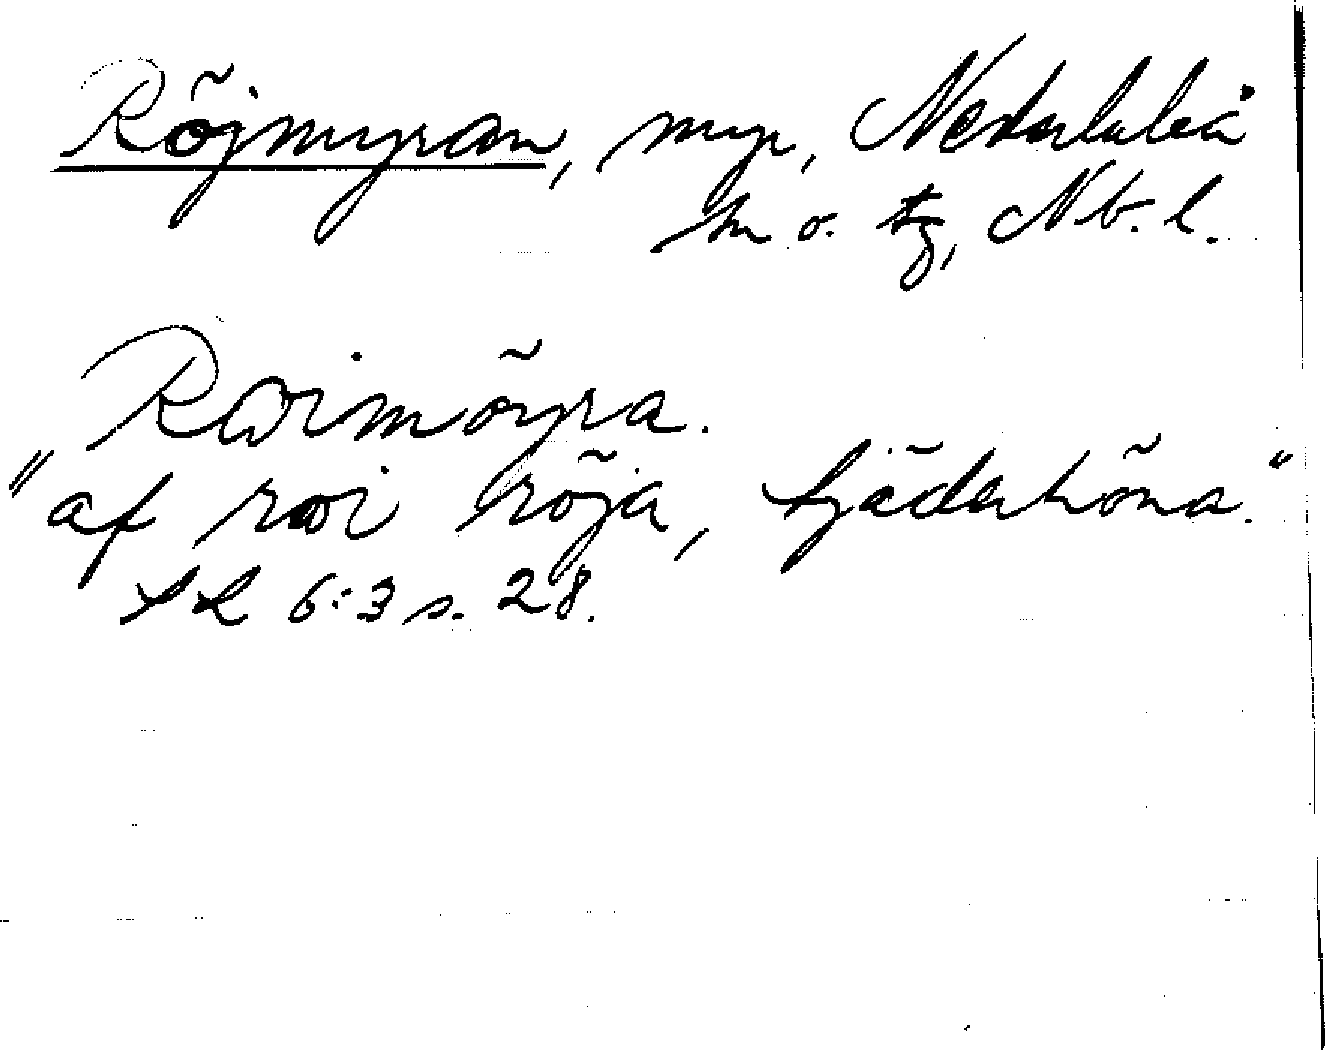 Röjmyran, myr, Nederluleå
sn o. tg, Nb. l.
Råimöyra.
"af råi röja, fjäderhöna."
SL 6:3 s. 28.